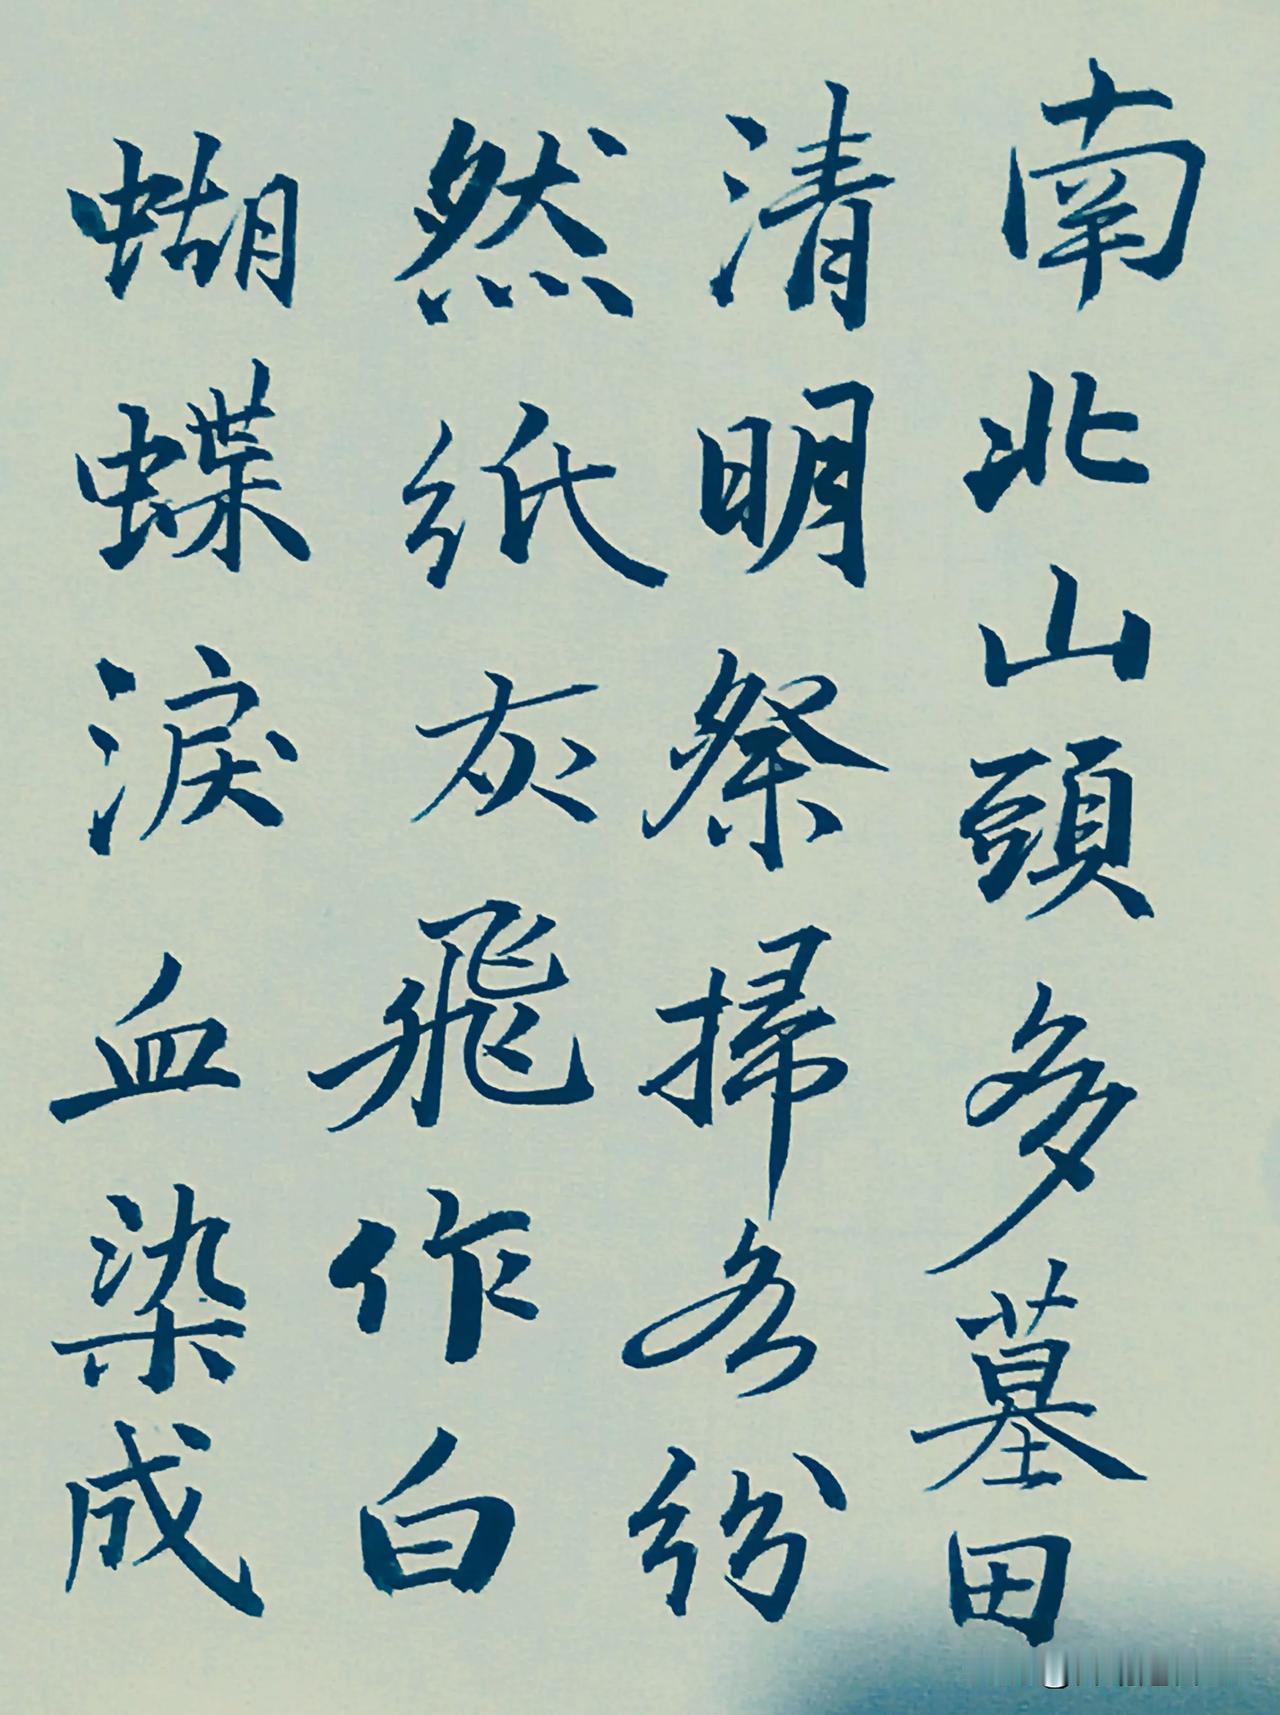 南北山頭多墓田
清明祭掃各紛
然紙灰飛作白
蝴蝶淚血染成